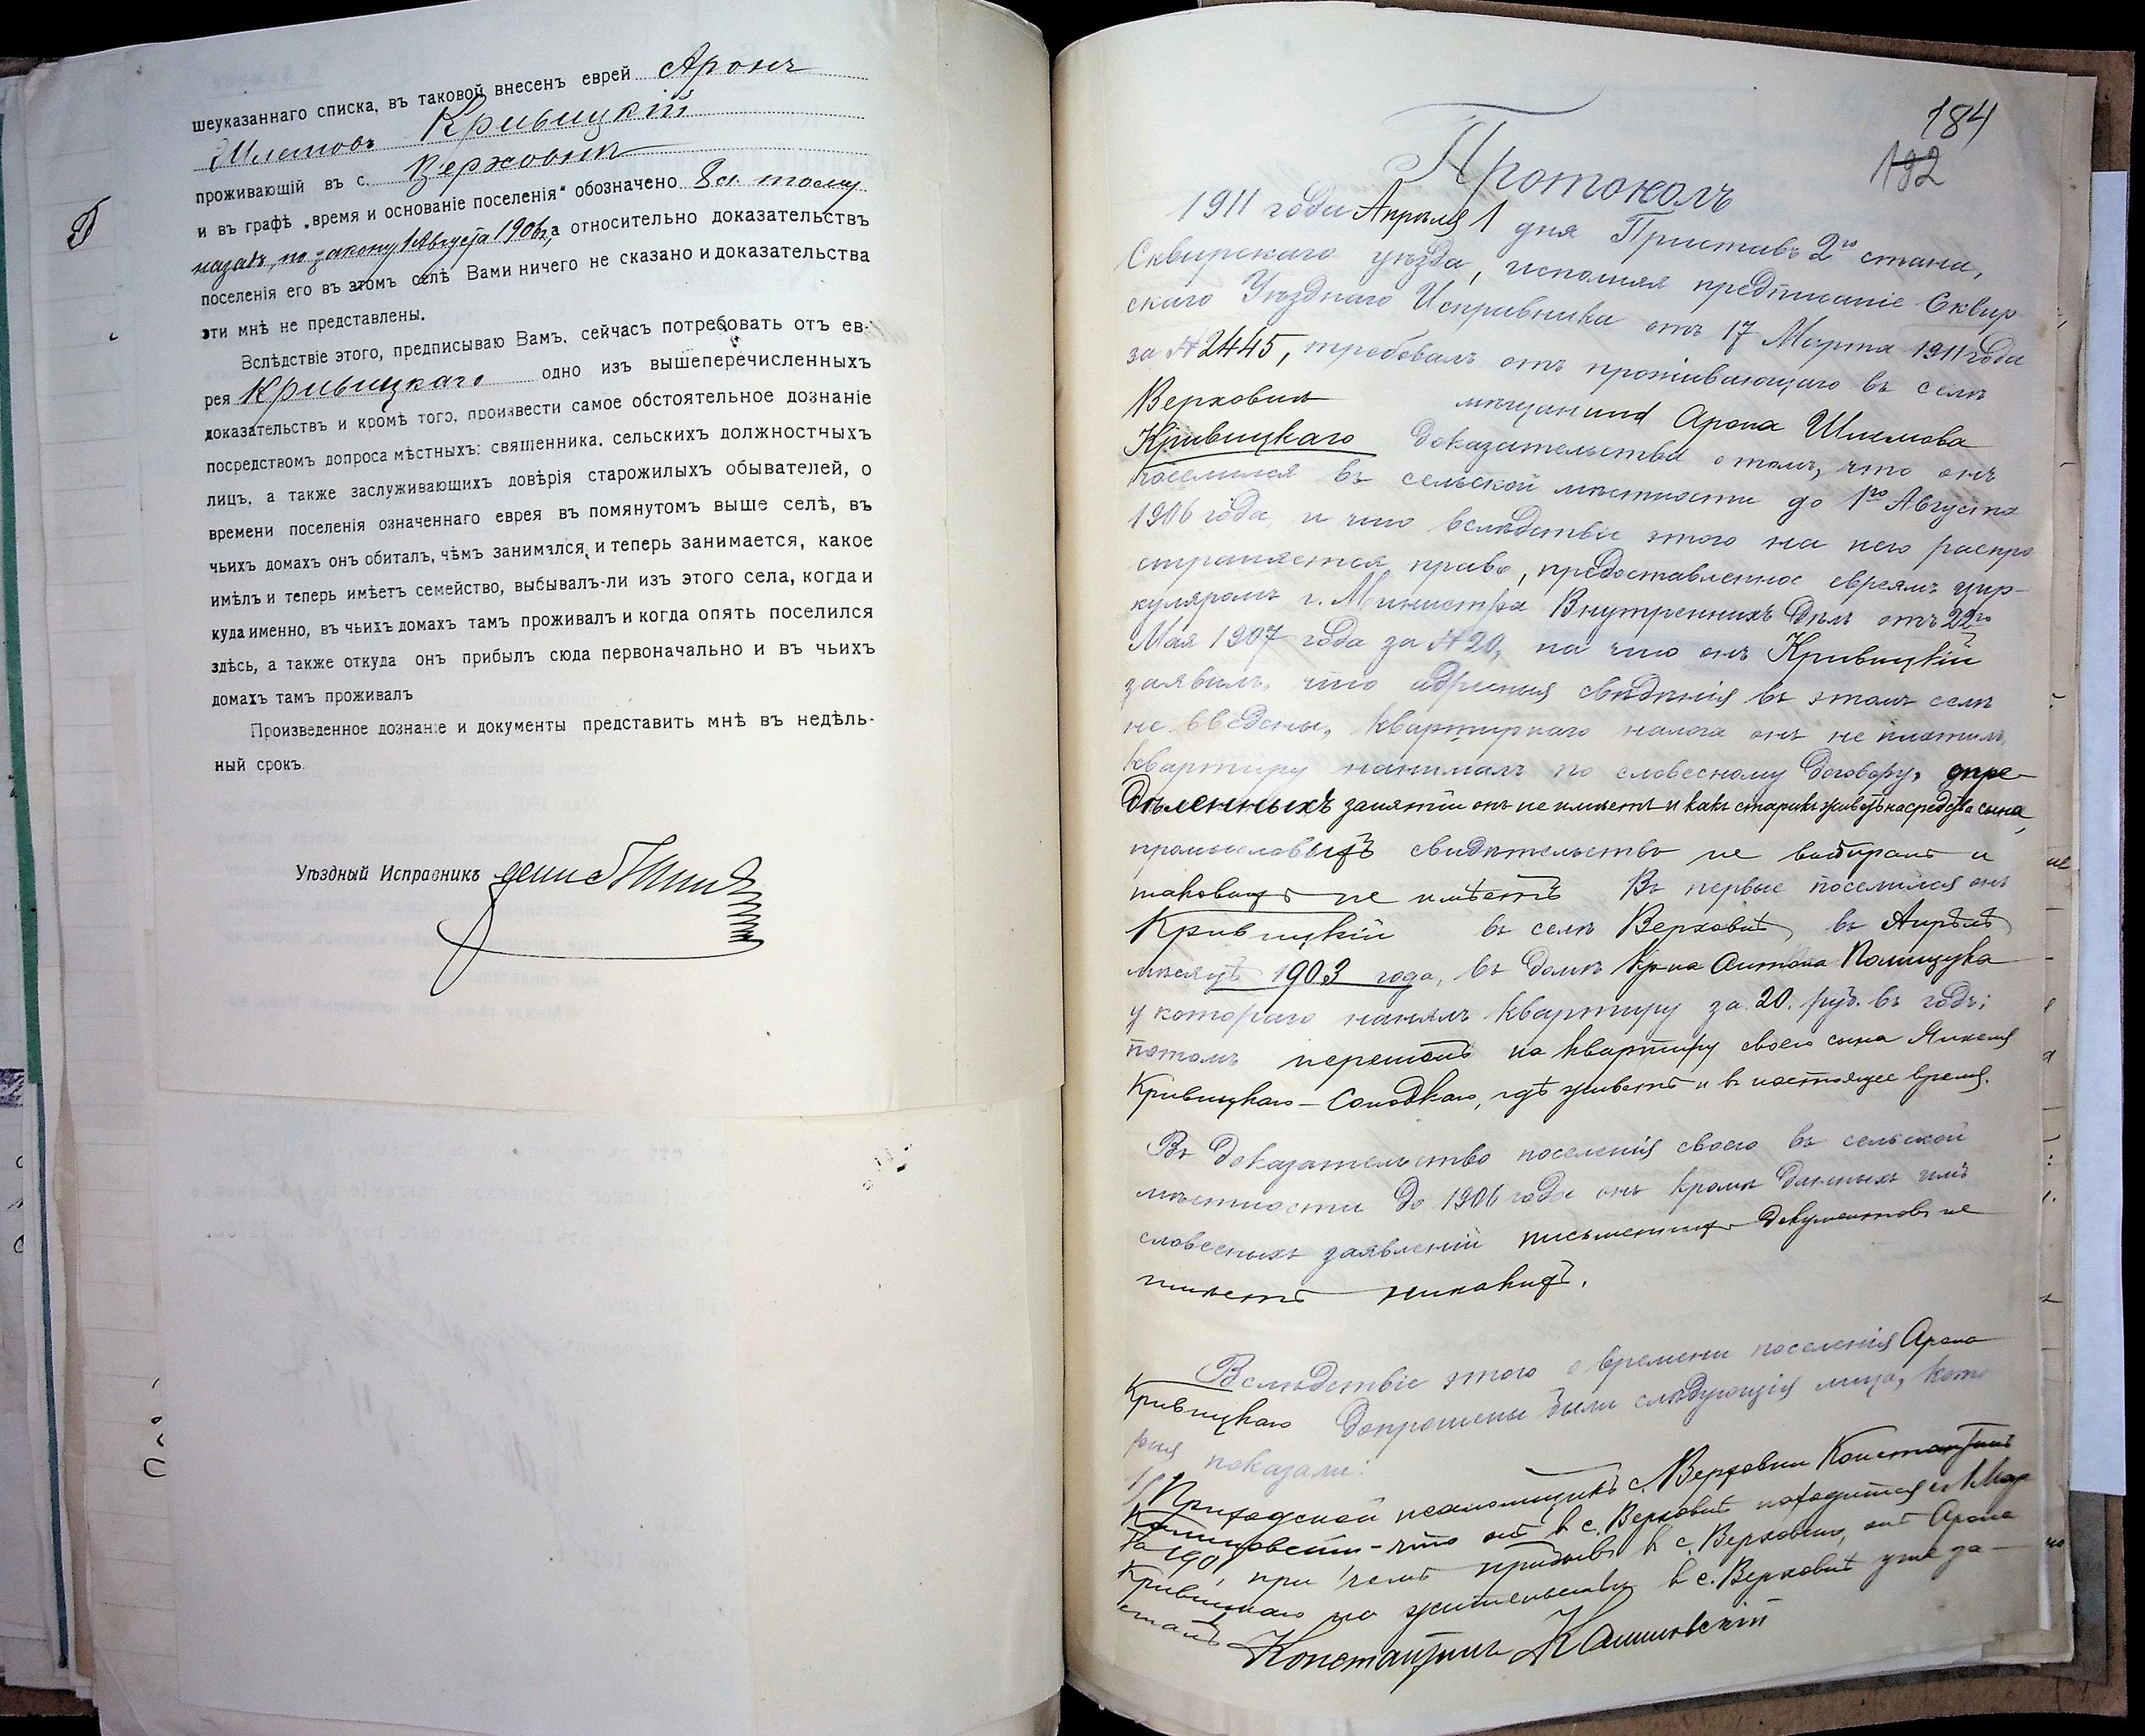 шеуказаннаго списка, въ таковой внесенъ еврей Аронъ
Шлемовъ Кривицкій
проживающій въ с. Верховнѣ
и въ графѣ „время и основаніе поселенія“ обозначено 8 л. тому
назадъ, по закону 1 Августа 1906 г., а относительно доказательствъ
поселенія его въ этомъ селѣ Вами ничего не сказано и доказательства
эти мнѣ не представлены.
Вслѣдствіе этого, предписываю Вамъ. сейчасъ потребовать отъ ев-
рея Кривицкаго одно изъ вышеперечисленныхъ
доказательствъ и кромѣ того, произвести самое обстоятельное дознаніе
посредствомъ допроса мѣстныхъ: священника. сельскихъ должностныхъ
лицъ, а также заслуживающихъ довѣрія старожилыхъ обывателей, о
времени поселенія означеннаго еврея въ помянутомъ выше селѣ, въ
чьихъ домахъ онъ обиталъ, чѣмъ занимался и теперь занимается, какое
имѣлъ и теперь имѣетъ семейство, выбывалъ-ли изъ этого села, когда и
куда именно, въ чьихъ домахъ тамъ проживалъ и когда опять поселился
здѣсь, а также откуда онъ прибылъ сюда первоначально и въ чьихъ
домахъ тамъ проживалъ
Произведенное дознаніе и документы представить мнѣ въ недѣль-
ный срокъ.
Уѣздный Исправникъ
184
192
Протоколъ
1911 года Апрѣля 1 дня Приставъ 2го стана,
Сквирскаго уѣзда, исполняя предписаніе Сквир
скаго Уѣзднаго Исправника отъ 17 Марта 1911 года
за № 2445, требовалъ отъ проживающаго въ селѣ
Верховнѣ мѣщанина Арона Шлемова
Кривицкаго доказательства о томъ, что онъ
поселился въ сельской мѣстности до 1го Августа
1906 года, и что вслѣдствіе этого на него распро
страняется право, предоставленное евреямъ цир-
куляромъ г. Министра Внутреннихъ Дѣлъ отъ 22го
Мая 1907 года за № 20, на что онъ Кривицкій
заявилъ, что адресныя свѣдѣнія въ этомъ селѣ
не введены, квартирнаго налога онъ не платилъ,
квартиру нанималъ по словесному договору, опре-
дѣленныхъ занятій онъ не имѣетъ и какъ старикъ живетъ на средства сына,
промысловыхъ свидѣтельствъ не выбиралъ и
таковыхъ не имѣетъ Въ первые поселился онъ
Кривицкій въ селѣ Верховнѣ, въ Апрѣлѣ
мѣсяцѣ 1903 года, въ домѣ кр-на Антона Полищука
у котораго нанялъ квартиру за 20. руб. въ годъ;
потомъ перешелъ на квартиру своего сына Янкеля
Кривицкаго-Солодкаго, гдѣ живетъ и въ настоящее время.
Въ доказательство поселенія своего въ сельской
мѣстности до 1906 года онъ кромѣ данныхъ имъ
словесныхъ заявленій письменныхъ документовъ не
имѣетъ никакихъ.
Вслѣдствіе этого о времени поселенія Арона
Кривицкаго допрошены были слѣдующія лица, кото
рыя показали:
1/ Приходской псаломщикъ с. Верховни Константинъ
что онъ въ с. Верховнѣ находится съ Мар
та 190, при чемъ прибывъ въ с. Верховню, онъ Арона
Кривицкаго на жительствѣ въ с. Верховнѣ уже за-
сталъ
Константинъ